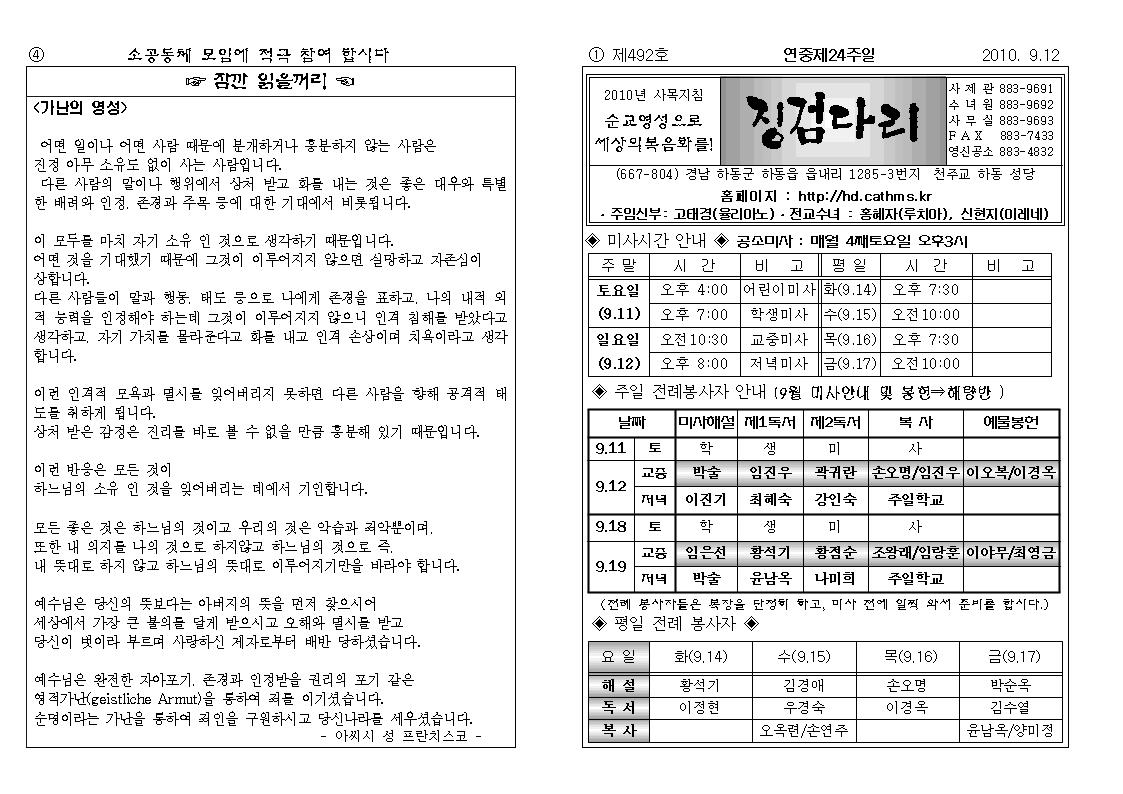 ④ 소공동체 모임에 적극 참여 합시다
☞ 잠깐 읽을꺼리 ☜
<가난의 영성>
어떤 일이나 어떤 사람 때문에 분개하거나 흥분하지 않는 사람은
진정 아무 소유도 없이 사는 사람입니다.
다른 사람의 말이나 행위에서 상처 받고 화를 내는 것은 좋은 대우와 특별
한 배려와 인정, 존경과 주목 등에 대한 기대에서 비롯됩니다.
이 모두를 마치 자기 소유 인 것으로 생각하기 때문입니다.
어떤 것을 기대했기 때문에 그것이 이루어지지 않으면 실망하고 자존심이
상합니다.
다른 사람들이 말과 행동, 태도 등으로 나에게 존경을 표하고, 나의 내적 외
적 능력을 인정해야 하는데 그것이 이루어지지 않으니 인격 침해를 받았다고
생각하고, 자기 가치를 몰라준다고 화를 내고 인격 손상이며 치욕이라고 생각
합니다.
이런 인격적 모욕과 멸시를 잊어버리지 못하면 다른 사람을 향해 공격적 태
도를 취하게 됩니다.
상처 받은 감정은 진리를 바로 볼 수 없을 만큼 흥분해 있기 때문입니다.
이런 반응은 모든 것이
하느님의 소유 인 것을 잊어버리는 데에서 기인합니다.
모든 좋은 것은 하느님의 것이고 우리의 것은 악습과 죄악뿐이며,
또한 내 의지를 나의 것으로 하지않고 하느님의 것으로 즉,
내 뜻대로 하지 않고 하느님의 뜻대로 이루어지기만을 바라야 합니다.
예수님은 당신의 뜻보다는 아버지의 뜻을 먼저 찾으시어
세상에서 가장 큰 불의를 달게 받으시고 오해와 멸시를 받고
당신이 벗이라 부르며 사랑하신 제자로부터 배반 당하셨습니다.
예수님은 완전한 자아포기, 존경과 인정받을 권리의 포기 같은
영적가난(geistliche Armut)을 통하여 죄를 이기셨습니다.
순명이라는 가난을 통하여 죄인을 구원하시고 당신나라를 세우셨습니다.
- 아씨시 성 프란치스코 -
① 제492호 연중제24주일 2010. 9.12
2010년 사목지침
순교영성으로
세상의복음화를!
징검다리
사 제 관 883-9691
수 녀 원 883-9692
사 무 실 883-9693
F A X 883-7433
영신공소 883-4832
(667-804) 경남 하동군 하동읍 읍내리 1285-3번지 천주교 하동 성당
홈페이지 : http://hd.cathms.kr
· 주임신부: 고태경(율리아노) · 전교수녀 : 홍혜자(루치아), 신현지(이레네)
◈ 미사시간 안내 ◈ 공소미사 : 매월 4째토요일 오후3시
주 말 시 간 비 고 평 일 시 간 비 고
토요일 오후 4:00 어린이미사 화(9.14) 오후 7:30
(9.11) 오후 7:00 학생미사 수(9.15) 오전10:00
일요일 오전10:30 교중미사 목(9.16) 오후 7:30
(9.12) 오후 8:00 저녁미사 금(9.17) 오전10:00
◈ 주일 전례봉사자 안내 (9월 미사안내 및 봉헌⇒해량반 )
날짜 미사해설 제1독서 제2독서 복 사 예물봉헌
9.11 토 학 생 미 사
9.12 교중 박술 임진우 곽귀란 손오명/임진우 이오복/이경옥
저녁 이진기 최혜숙 강인숙 주일학교
9.18 토 학 생 미 사
9.19 교중 임은선 황석기 황점순 조왕래/임랑훈 이야무/최영금
저녁 박술 윤남옥 나미희 주일학교
(전례 봉사자들은 복장을 단정히 하고, 미사 전에 일찍 와서 준비를 합시다.)
◈ 평일 전례 봉사자 ◈
요 일 화(9.14) 수(9.15) 목(9.16) 금(9.17)
해 설 황석기 김경애 손오명 박순옥
독 서 이정현 우경숙 이경옥 김수열
복 사 오옥련/손연주 윤남옥/양미정